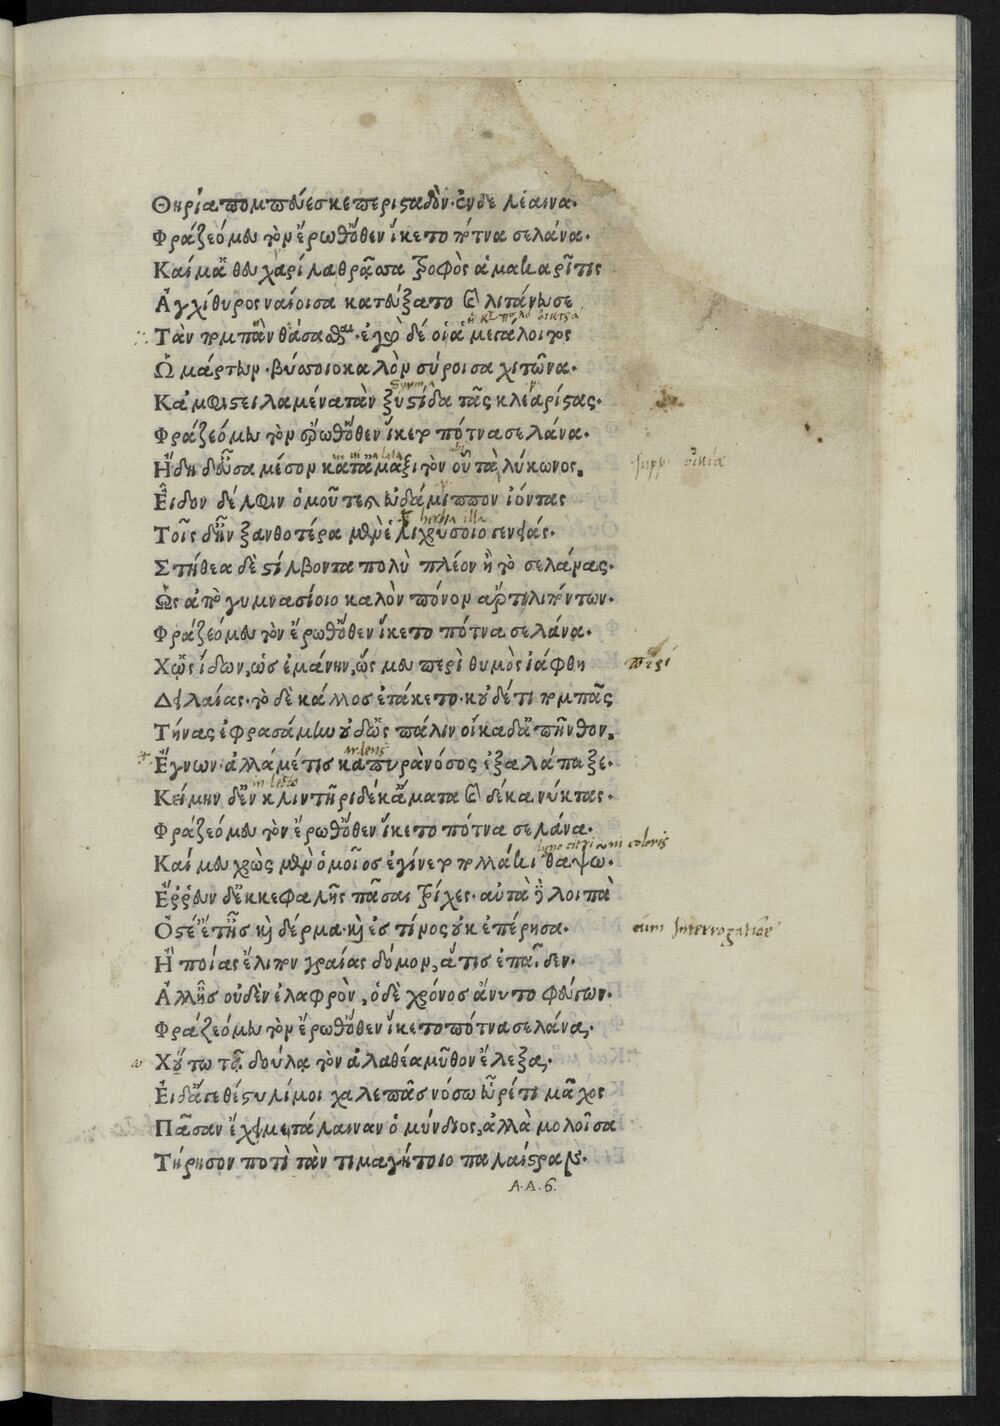 Θηρία πομπεύεσκε περισταδὸν· ἐν δὲ λέαινα.
Φράζεό μευ τὸν ἔρωθ' ὅθεν ἵκετο πότνα σελάνα.
Καί μ' ἁ θευχαρίλα θρᾷσσα τροφὸς ἁ μακαρῖτις
Ἀγχίθυρος ναίοισα κατεύξατο καὶ λιτάνευσε
ἢ καὶ πολὺ οἰκτρά
Τὰν πομπὰν θάσασθαι· ἐγὼ δέ οἱ ἁ μεγάλοιτος
Ὡμάρτευν· βύσσοιο καλὸν σύροισα χιτῶνα.
Κἀμφιστειλαμένα τὰν ξυστίδα τᾶς κλεαρίστας.
Φράζεό μευ τὸν ἔρωθ' ὅθεν ἵκετο πότνα σελάνα.
Ἤδη δ' εὖσα μέσον κατ' ἀμαξιτὸν οὗ τὰ λύκωνος.
supp. οἰκία
Εἶδον δέλφιν ὁμοῦ τε καὶ εὐδάμιππον ἰόντας
herba illa
Τοῖς δ' ἦν ξανθοτέρα μὲν ἑλιχρύσοιο γενειάς.
Στήθεα δὲ στίλβοντα πολὺ πλέον ἢ τὸ σελάνας.
Ὡς ἀπὸ γυμνασίοιο καλὸν πόνον ἄρτι λιπόντων.
Φράζεό μευ τὸν ἔρωθ' ὅθεν ἵκετο πότνα σελάνα.
Χὡς ἴδων, ὡς ἐμάνην, ὥς μευ περὶ θυμὸς ἰάφθη
Δειλαίας· τὸ δὲ κάλλος ἐτάκετο· κοὐδέ τι πομπᾶς
Τήνας ἐφρασάμην οὐδ' ὡς πάλιν οἴκαδ' ἀπῆνθον.
ardens
Ἔγνων· ἀλλά μέ τις καπυρὰ νόσος ἐξαλάπαξε.
in lecto
Κείμην δ' ἐν κλιντῆρι δέκ' ἄματα καὶ δέκα νύκτας.
Φράζεό μευ τὸν ἔρωθ' ὅθεν ἵκετο πότνα σελάνα.
coloris
Καί μευ χρὼς μὲν ὁμοῖος ἐγίνετο πολλάκι θάψῳ.
Ἔρρευν δ' ἐκ κεφαλῆς πᾶσαι τρίχες· αὐτὰ δὲ λοιπὰ
Ὀστέ' ἔτ' ἦς καὶ δέρμα· καὶ ἐς τίνος οὐκ ἐπέρησα.
cum Interrogatione
Ἢ ποίας ἔλιπον γραίας δόμον, ἅτις ἐπᾷδεν.
Ἀλλ' ἦς οὐδὲν ἐλαφρὸν, ὁ δὲ χρόνος ἄνυτο φεύγων.
Φράζεό μευ τὸν ἔρωθ' ὅθεν ἵκετο πότνα σελάνα.
ω Χοὕτω τᾷ δούλᾳ τὸν ἀλαθέα μῦθον ἔλεξα.
Εἰ δ' ἄγε θέστυλί μοι χαλεπᾶς νόσω εὑρέ τι μᾶχος
Πᾶσαν ἔχει με τάλαιναν ὁ μύνδιος, ἀλλὰ μολοῖσα
Τήρησον ποτὶ τὰν τιμαγήτοιο παλαίστραν.
A.A.6.